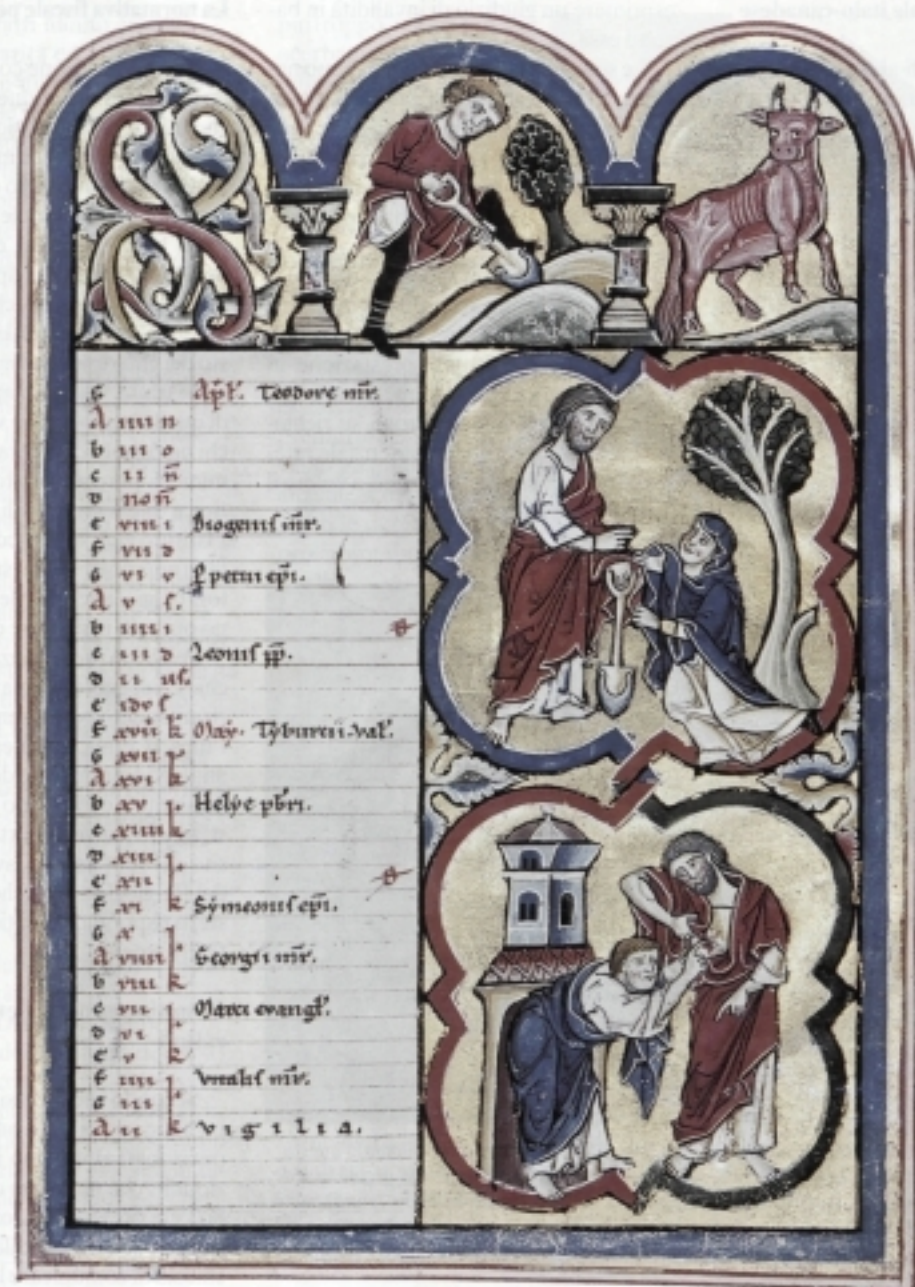 G Apł. Teodore mr̄.
A iiii n
b iii o
c ii n̄
D non̄
E viii i Diogenis mr̄.
F vii d
G vi v Ppetui epī.
A v s.
b iiii i
c iii d Leonis pp̄.
D ii us.
E idus
F xviii k May. Tyburcii. Val'.
G xvii
A xvi k
b xv Helye pbr̄i.
c xiiii k
D xiii
E xii
F xi k Symeonis epī.
G x
A viiii Georgii mr̄.
b viii k
c vii Marci evangl'.
D vi
E v k
F iiii Vitalis mr̄.
G iii
A ii k vigilia.